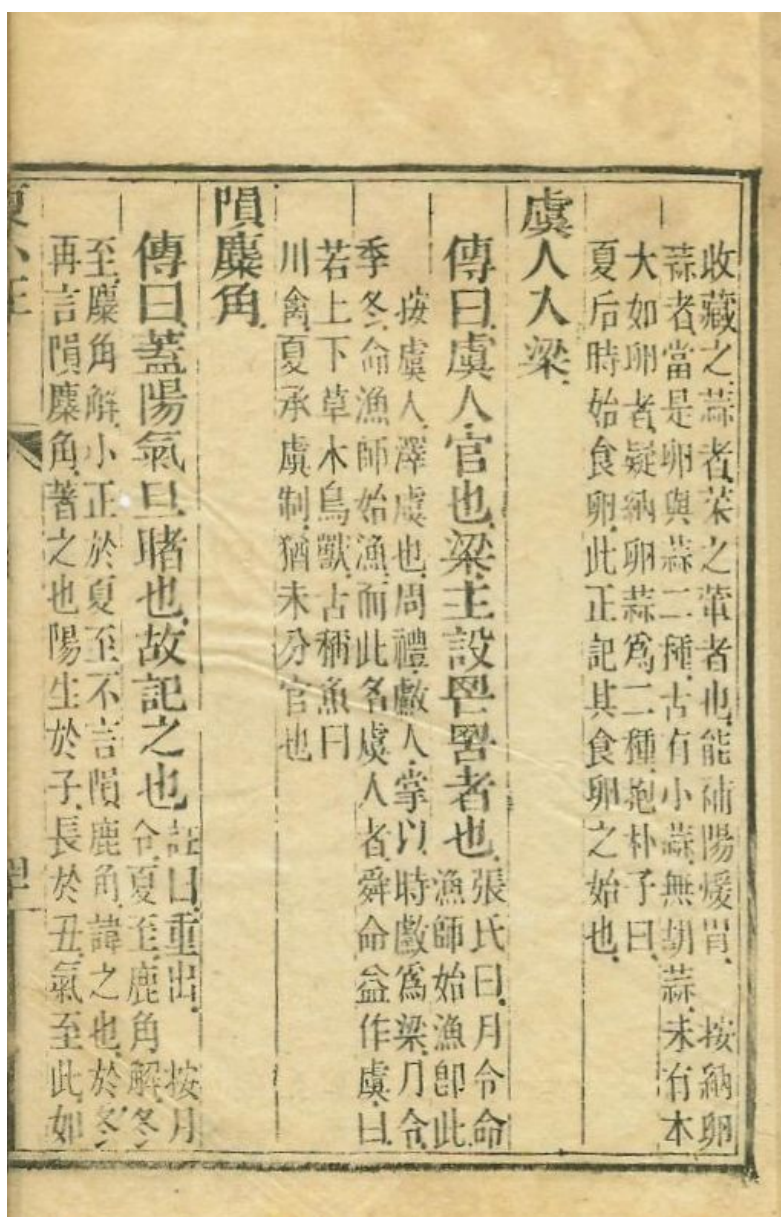 收藏之蒜者菜之葷者也能補陽煖胃 按納卵
蒜者當是卵與蒜二種古有小蒜無胡蒜未有本
大如卵者疑納卵蒜爲二種抱朴子曰
夏后時始食卵此正記其食卵之始也
虞人入梁
傳曰虞人官也梁主設罔罟者也張氏曰月令命
漁師始漁卽此
按虞人澤虞也周禮䱷人掌以時䱷爲梁月令
季冬命漁師始漁而此名虞人者舜命益作虞曰
若上下草木鳥獸古稱魚曰
川禽夏承虞制猶未分官也
隕麋角
傳曰蓋陽氣旦睹也故記之也註曰重出 按月
令夏至鹿角解冬
至麋角解小正於夏至不言隕鹿角諱之也於冬
再言隕麋角著之也陽生於子長於丑氣至此如
夏小正